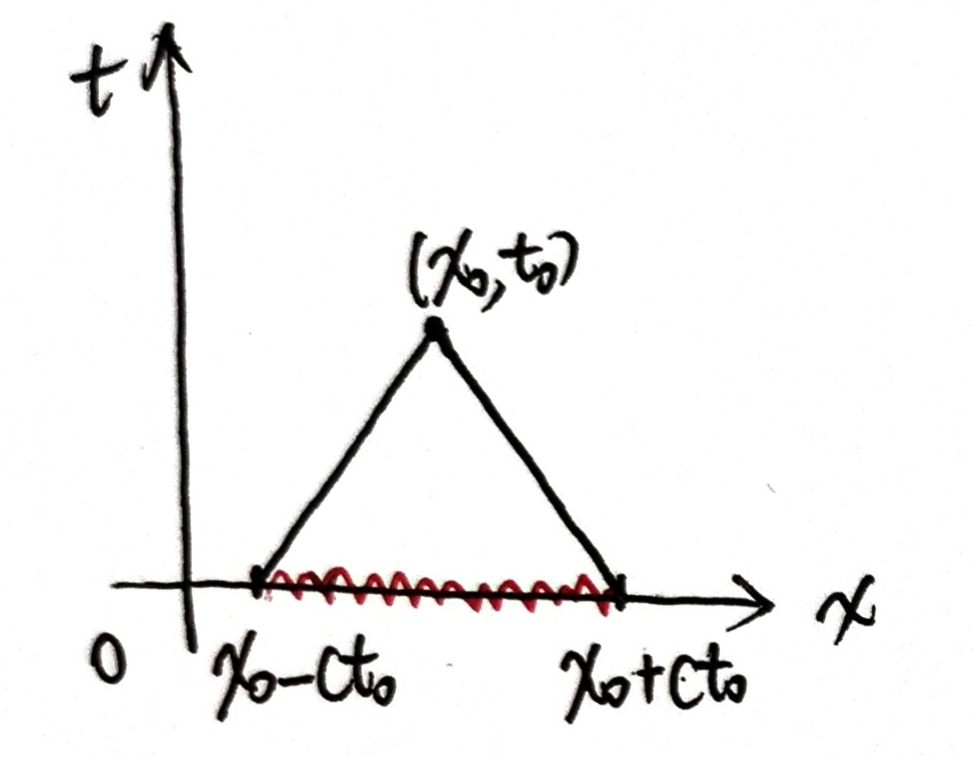 t
(x₀,t₀)
x
0
x₀-ct₀
x₀+ct₀